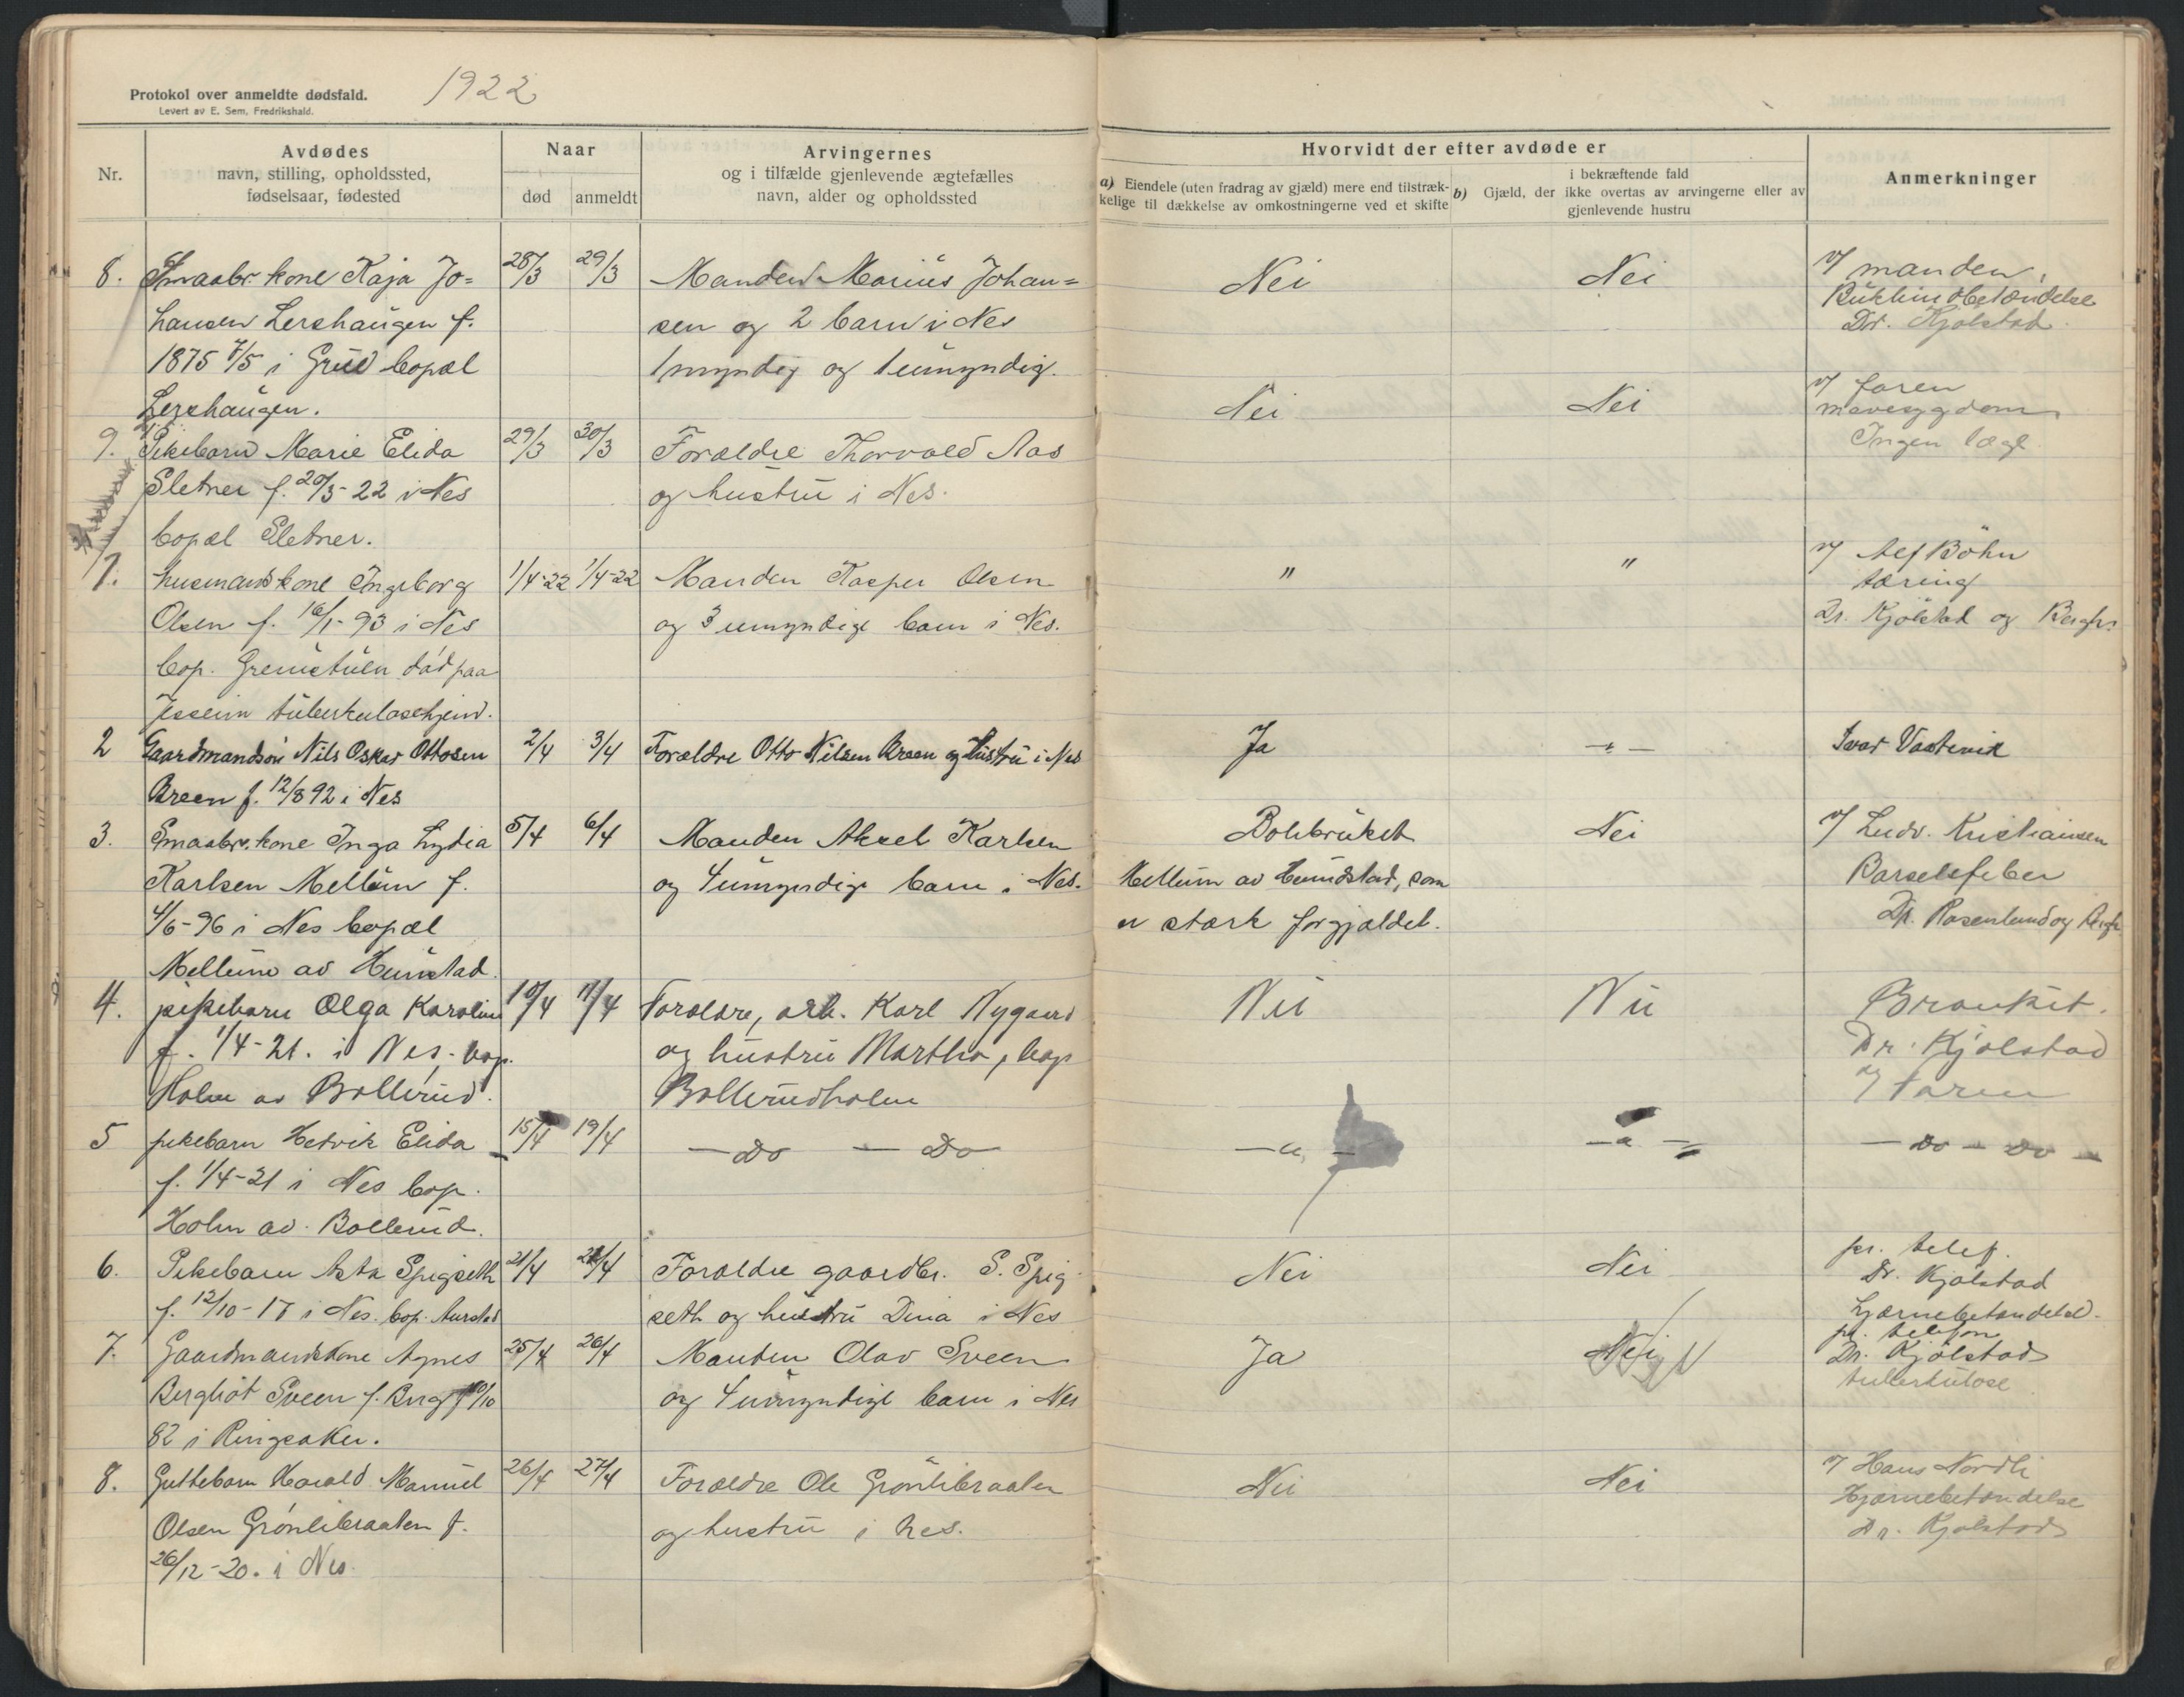 Protokol over anmeldte dødsfald.
1922
Levert av E. Sem, Fredrikshald.
Nr.
Avdødes
navn, stilling, opholdssted,
fødselsaar, fødested
Naar
død
anmeldt
Arvingernes
og i tilfælde gjenlevende ægtefælles
navn, alder og opholdssted
Hvorvidt der efter avdøde er
a) Eiendele (uten fradrag av gjæld) mere end tilstræk-
kelige til dækkelse av omkostningerne ved et skifte
i bekræftende fald
b) Gjæld, der ikke overtas av arvingerne eller av
gjenlevende hustru
Anmerkninger
8.
Smaabr. kone Kaja Jo=
hansen Lershaugen f.
1875 7/5 i Grue bopæl
Lershaugen.
28/3
29/3
Manden Marius Johan=
sen og 2 barn i Nes
1 myndig og 1 umyndig.
Nei
Nei
v/ manden,
Dr. Kjølstad
9.
Pikebarn Marie Elida
Sletner f. 20/3-22 i Nes
bopæl Sletner.
29/3
30/3
Forældre Thorvald Aas
og hustru i Nes.
Nei
Nei
v/ faren
mavesygdom
Ingen læge
1.
husmandskone Ingeborg
Olsen f. 16/1-93 i Nes
bop. Grenistuen død paa
Jesseim tuberkulosehjem.
1/4-22
1/4-22
Manden Kasper Olsen
og 3 umyndige barn i Nes.
"
"
v/ Alf Böhn
tæring
Dr. Kjölstad og
2
Gaardmandsøn Nils Oskar Ottosen
Breen f. 12/8 92 i Nes
2/4
3/4
Forældre Otto Nilsen Breen og Hustru i Nes
Ja
- " -
Ivar Vastevik
3.
Smaabr. kone Inga Lydia
Karlsen Mellum f.
4/6-96 i Nes bopæl
Mellum av Hunstad.
5/4
6/4
Manden Aksel Karlsen
og 4 umyndige barn i Nes.
Bolibruket
Mellum av Hundstad, som
er stærk forgjældet.
Nei
v/ Ludv. Kristiansen
Barselsfeber
Dr. Rosenlund og
4.
pikebarn Olga Karoline
f. 1/4-21. i Nes. bop.
Holm av Bollerud.
10/4
11/4
Forældre, arb. Karl Nygaard
og hustru Martha, bop
Bollerudholm
Nei
Nei
Bronkit.
Dr. Kjølstad
v/ Faren
5
pikebarn Hedvik Elida
f. 1/4-21 i Nes bop.
Holm av Bollerud.
15/4
19/4
- Do - Do -
- " -
- " -
- Do - Do -
6.
Pikebarn Asta Spigseth
f. 12/10-17 i Nes. bop. Aurstad
21/4
Forældre gaardbr. S. Spig-
seth og hustru Dina i Nes
Nei
Nei
pr. telef.
Dr. Kjølstad
hjernebetændelse.
7.
Gaardmandskone Agnes
Bergliot Sveen f. Berg
82 i Ringsaker.
25/4
26/4
Manden Olav Sveen
og 4 umyndige barn i Nes
Ja
Nei
pr. telefon
Dr. Kjølstad
tuberkulose
8.
Guttebarn Harald Manuel
Olsen Grønlibraaten f.
26/12-20. i Nes.
26/4
27/4
Forældre Ole Grønlibraaten
og hustru i Nes.
Nei
Nei
v/ Hans Nordli
Hjernebetændelse
Dr. Kjølstad